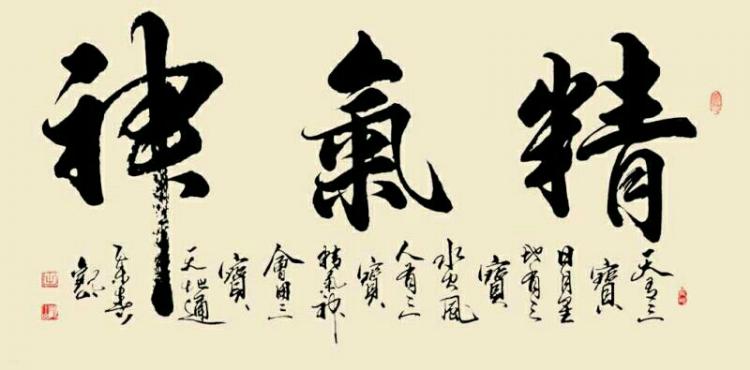 精氣神
天有三
寶
日月星
地有三
寶
水火風
人有三
寶
精氣神
會用三
寶
天地通
乙未春